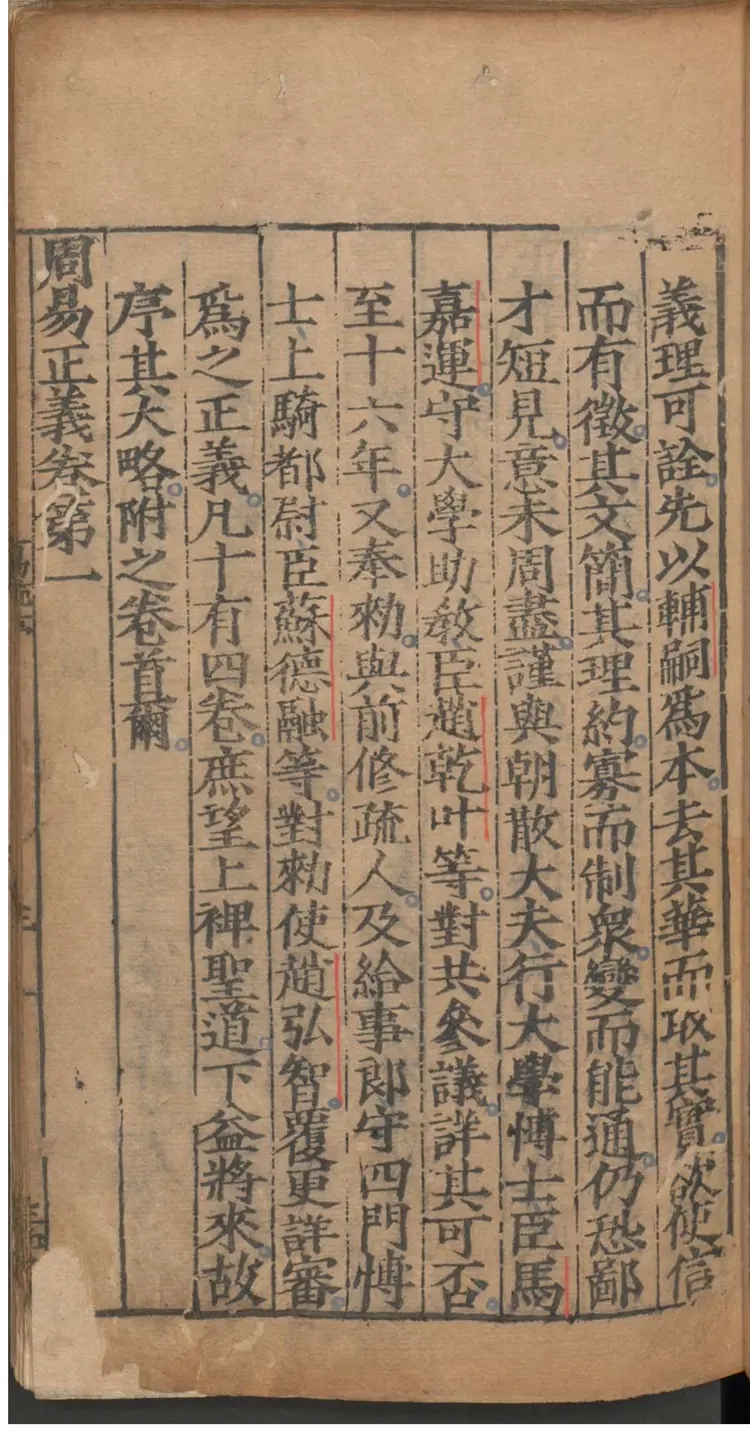 義理可詮先以輔嗣爲本去其華而取其實欲使信
而有徵其文簡其理約寡而制衆變而能通仍恐鄙
才短見意未周盡謹與朝散大夫行大學博士臣馬
嘉運守大學助敎臣趙乾叶等對共參議詳其可否
至十六年又奉勑與前修疏人及給事郎守四門博
士上騎都尉臣蘇德融等對勑使趙弘智覆更詳審
爲之正義凡十有四卷庶望上裨聖道下益將來故
序其大略附之卷首爾
周易正義卷第一